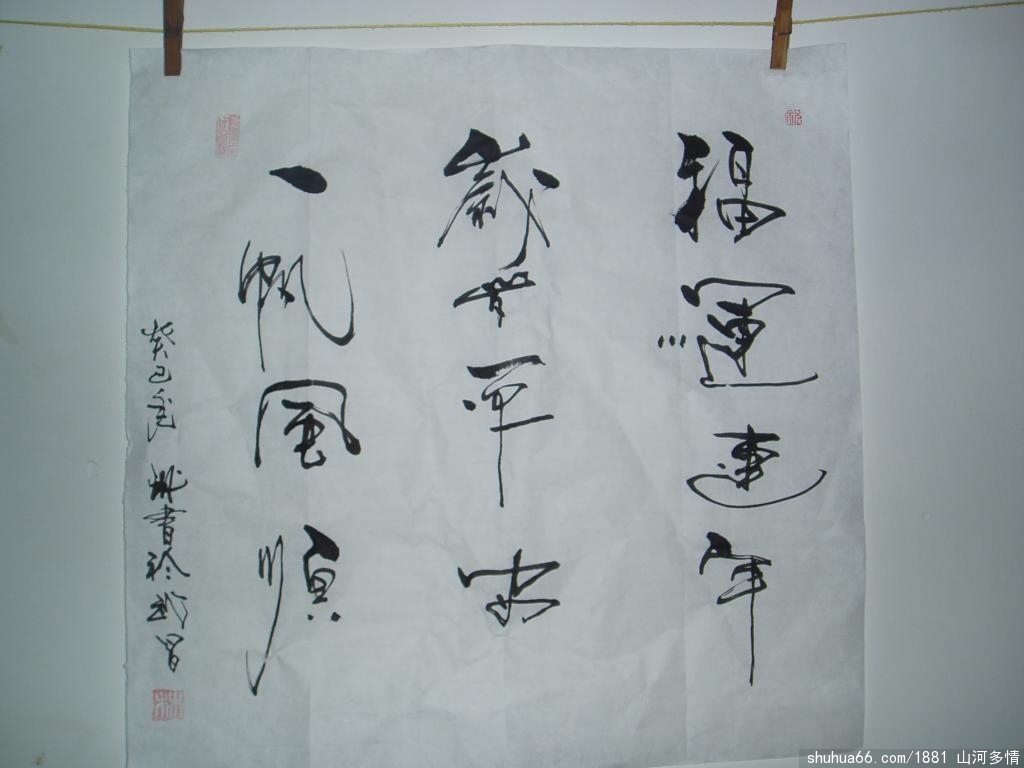 福運連年
歲歲平安
一帆風順
癸巳 書於武昌
shuhua66.com/1881 山河多情